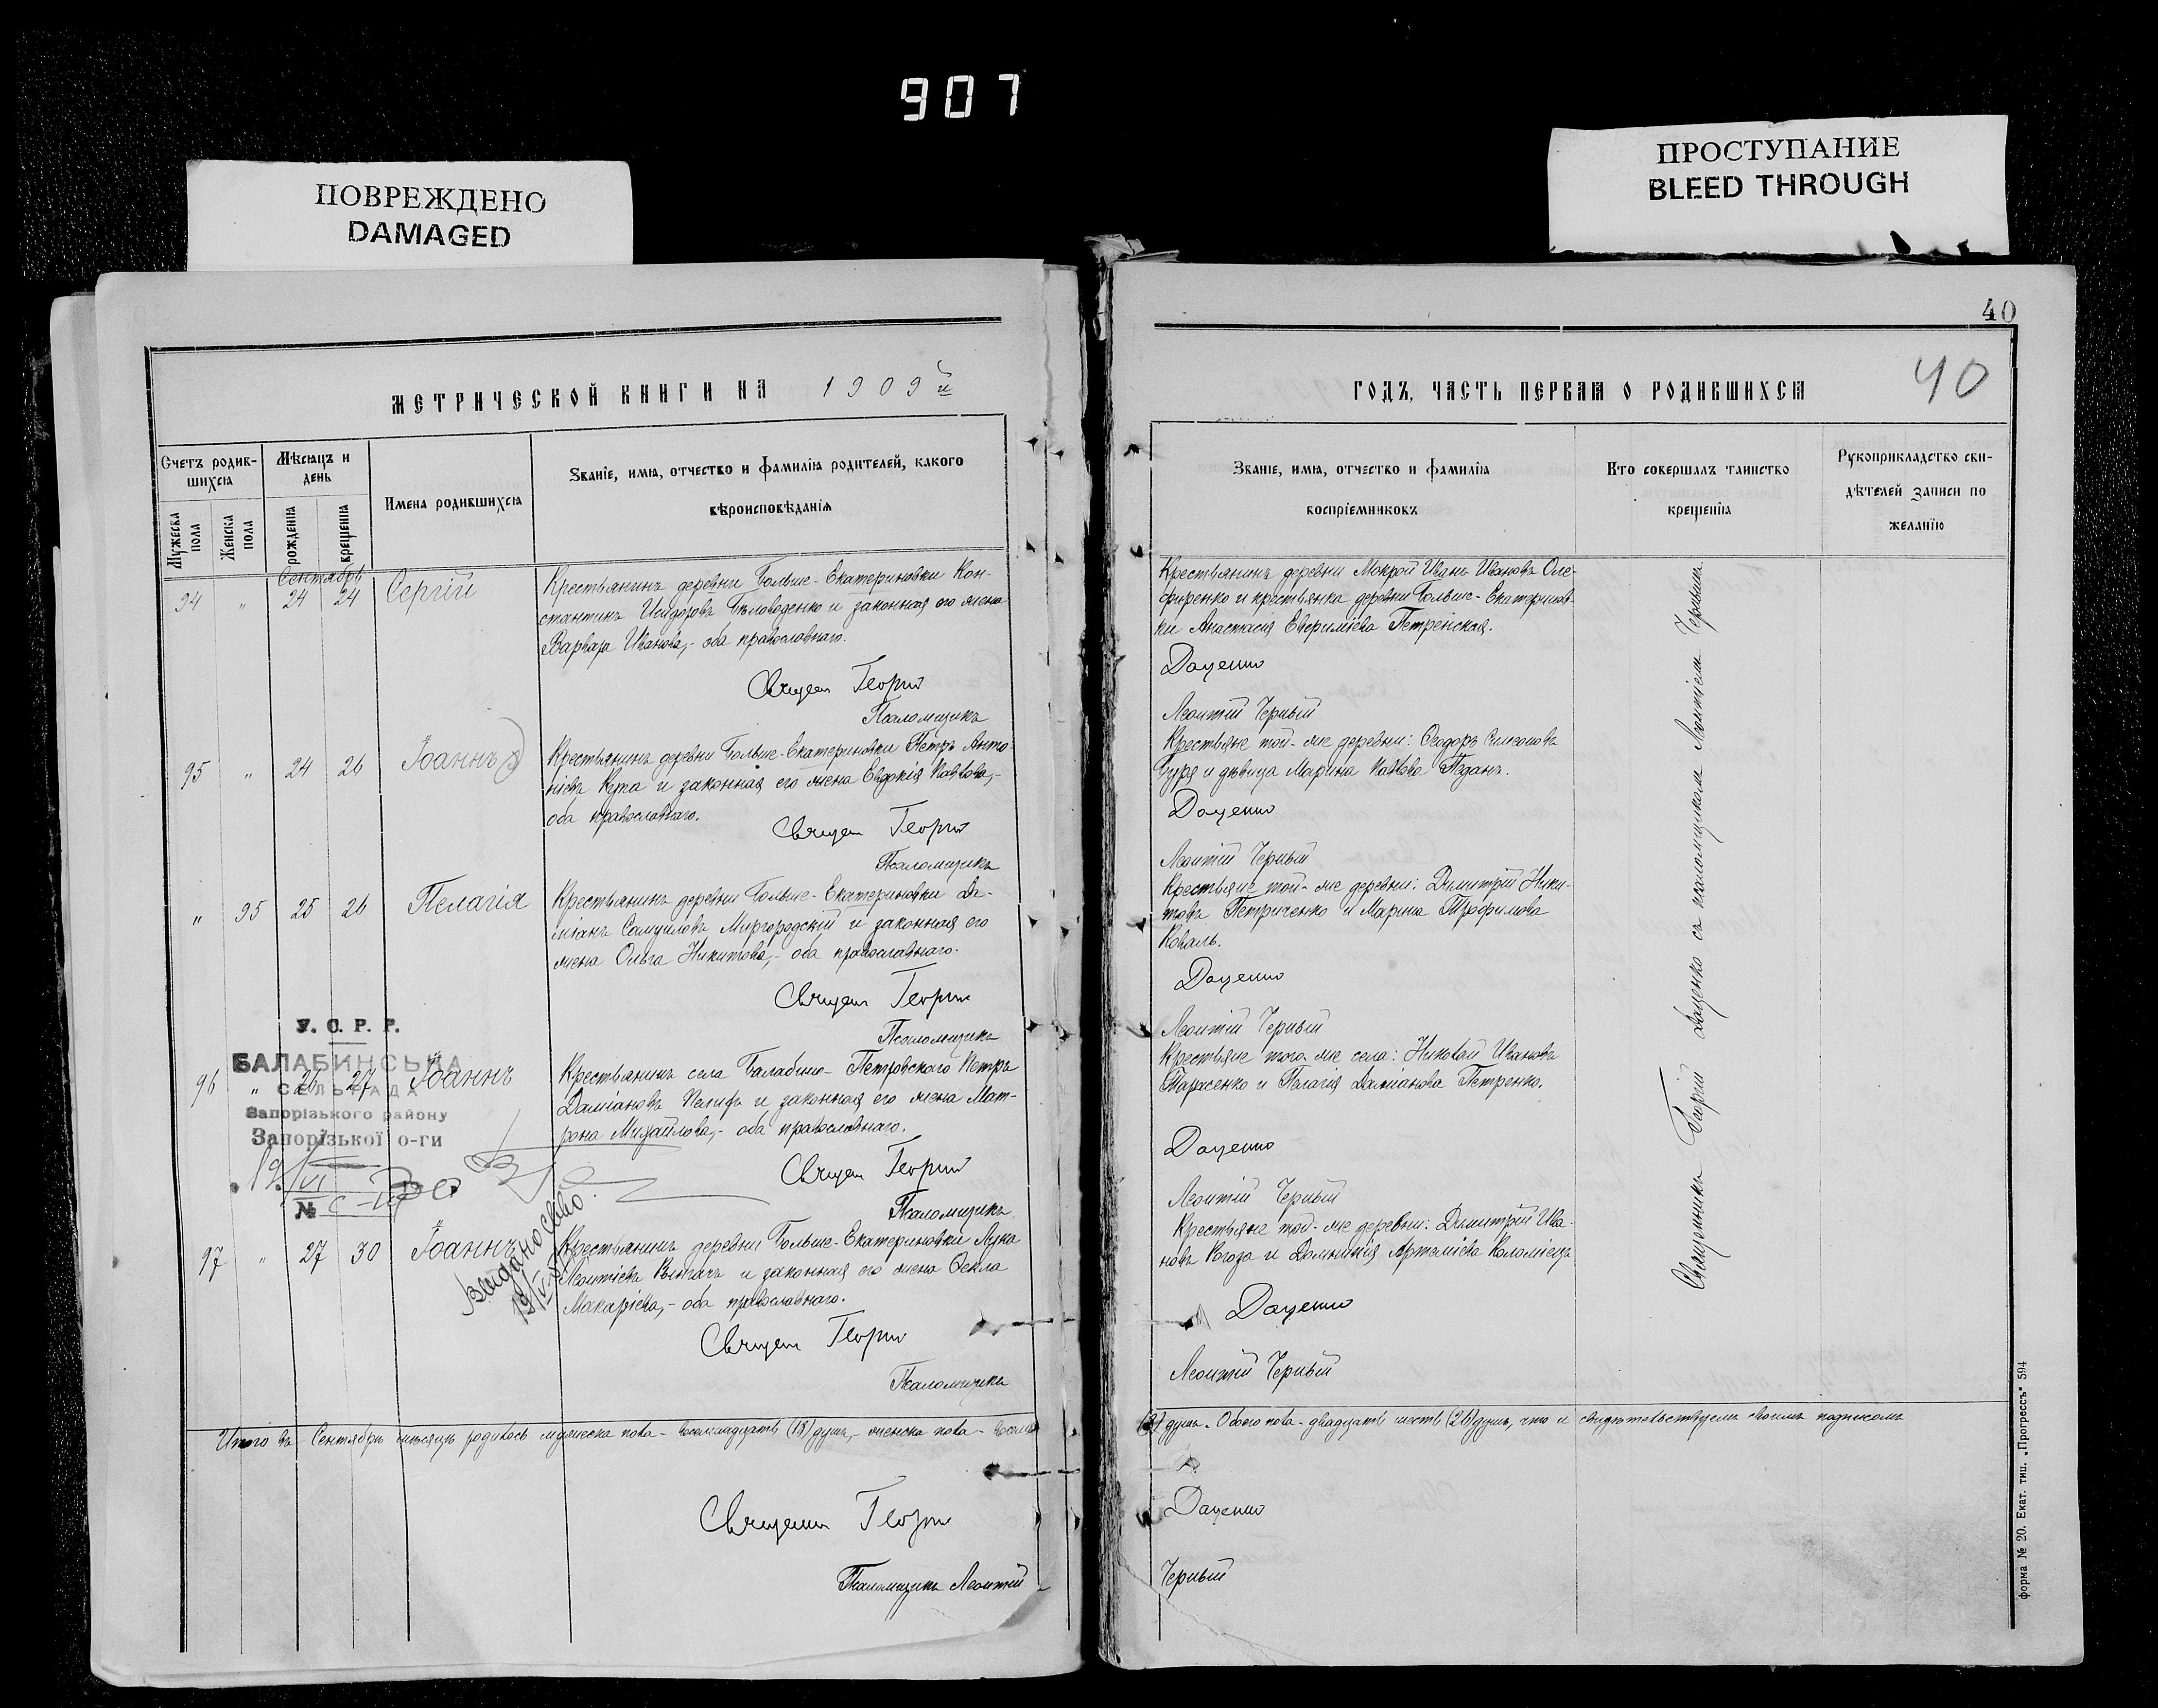 907
ПОВРЕЖДЕНО
DAMAGED
ПРОСТУПАНИЕ
BLEED THROUGH
МЕТРИЧЕСКОЙ КНИГИ НА 1909й
Счетъ родив-
шихся
Мѣсяцъ и
день
Имена родившихся
Званіе, имя, отчество и фамилія родителей, какого
вѣроисповѣданія
Мужеска
пола
Женска
пола
рожденія
крещенія
Сентябрь
94 " 24 24 Сергій
Крестьянинъ деревни Больше-Екатериновки Кон-
стантинъ Исидоровъ Бѣловоденко и законная его жена
Варвара Иванова,- оба православнаго.
Священ Георгій
Псаломщикъ
95 " 24 26 Іоаннъ
Крестьянинъ деревни Больше-Екатериновки Петръ Анто-
ніевъ Куха и законная его жена Евдокія Павлова,-
оба православнаго.
Священ Георгій
Псаломщикъ
" 95 25 26 Пелагія
Крестьянинъ деревни Больше-Екатериновки Да-
міанъ Самуиловъ Миргородскій и законная его
жена Ольга Никитова,- оба православнаго.
Священ Георгій
Псаломщикъ
У. С. Р. Р.
БАЛАБИНСЬКА
СІЛЬРАДА
Запорізького району
Запорізької о-ги
№
96 " 26 27 Іоаннъ
Крестьянинъ села Балабино-Петровскаго Петръ
Даміановъ и законная его жена Мат-
рона Михайлова,- оба православнаго.
Священ Георгій
Псаломщикъ
97 " 27 30 Іоаннъ
Крестьянинъ деревни Больше-Екатериновки Лука
Леонтіевъ и законная его жена Ѳекла
Макаріева,- оба православнаго.
Священ Георгій
Псаломщикъ
Итого въ Сентябрѣ мѣсяцѣ родилось мужеска пола- восемнадцать (18) душъ,- женска пола- восемь
Священник Георгій
Псаломщикъ Леонтій
40
40
ГОДЪ, ЧАСТЬ ПЕРВАЯ О РОДИВШИХСЯ
Званіе, имя, отчество и фамилія
воспріемниковъ
Кто совершалъ таинство
крещенія
Рукоприкладство сви-
дѣтелей записи по
желанію
Крестьянинъ деревни Мокрой Иванъ Ивановъ Оле-
фиренко и крестьянка деревни Больше-Екатеринов-
ки Анастасія Евфиміева Петренская.
Даценко
Леонтій Черный
Крестьяне той-же деревни: Ѳеодоръ Симеоновъ
Буря и дѣвица Марина Павлова Педанъ.
Даценко
Леонтій Черный
Крестьяне той-же деревни: Димитрій Ники-
товъ Петриченко и Марина Трофимова
Коваль.
Даценко
Леонтій Черный
Крестьяне того же села: Николай Ивановъ
Тарасенко и Пелагія Даміанова Петренко.
Даценко
Леонтій Черный
Крестьяне той-же деревни: Димитрій Ива-
новъ Когоза и Домникія Артеміева Коломіецъ
Даценко
Леонтій Черный
Священникъ Георгій Даценко съ псаломщикомъ Леонтіемъ Чернымъ
(8) душъ. Обоего пола- двадцать шесть (26) душъ, что и свидѣтельствуемъ своимъ подписомъ
Даценко
Черный
форма № 20. Екат. тип. „Прогрессъ" 594